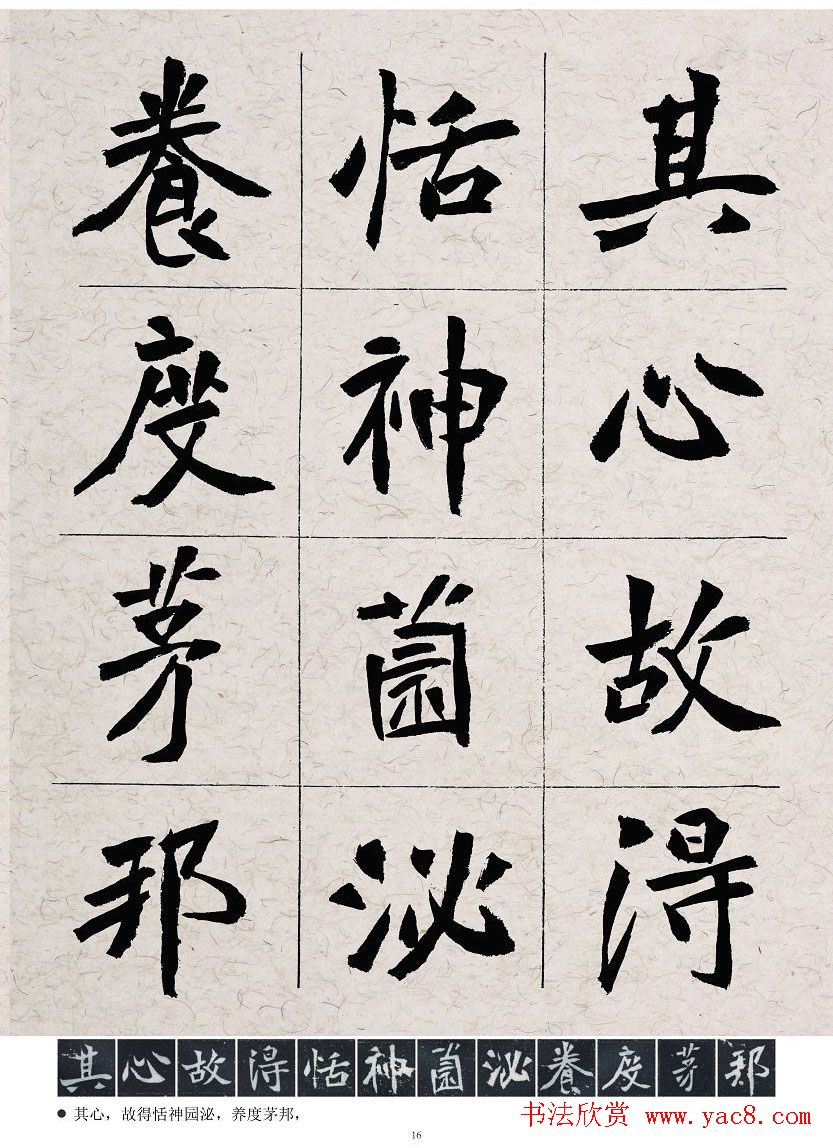 其心故得
恬神薗泌
養度茅邦
其心故得恬神薗泌養度茅邦
● 其心，故得恬神园泌，养度茅邦，
书法欣赏 www.yac8.com
16